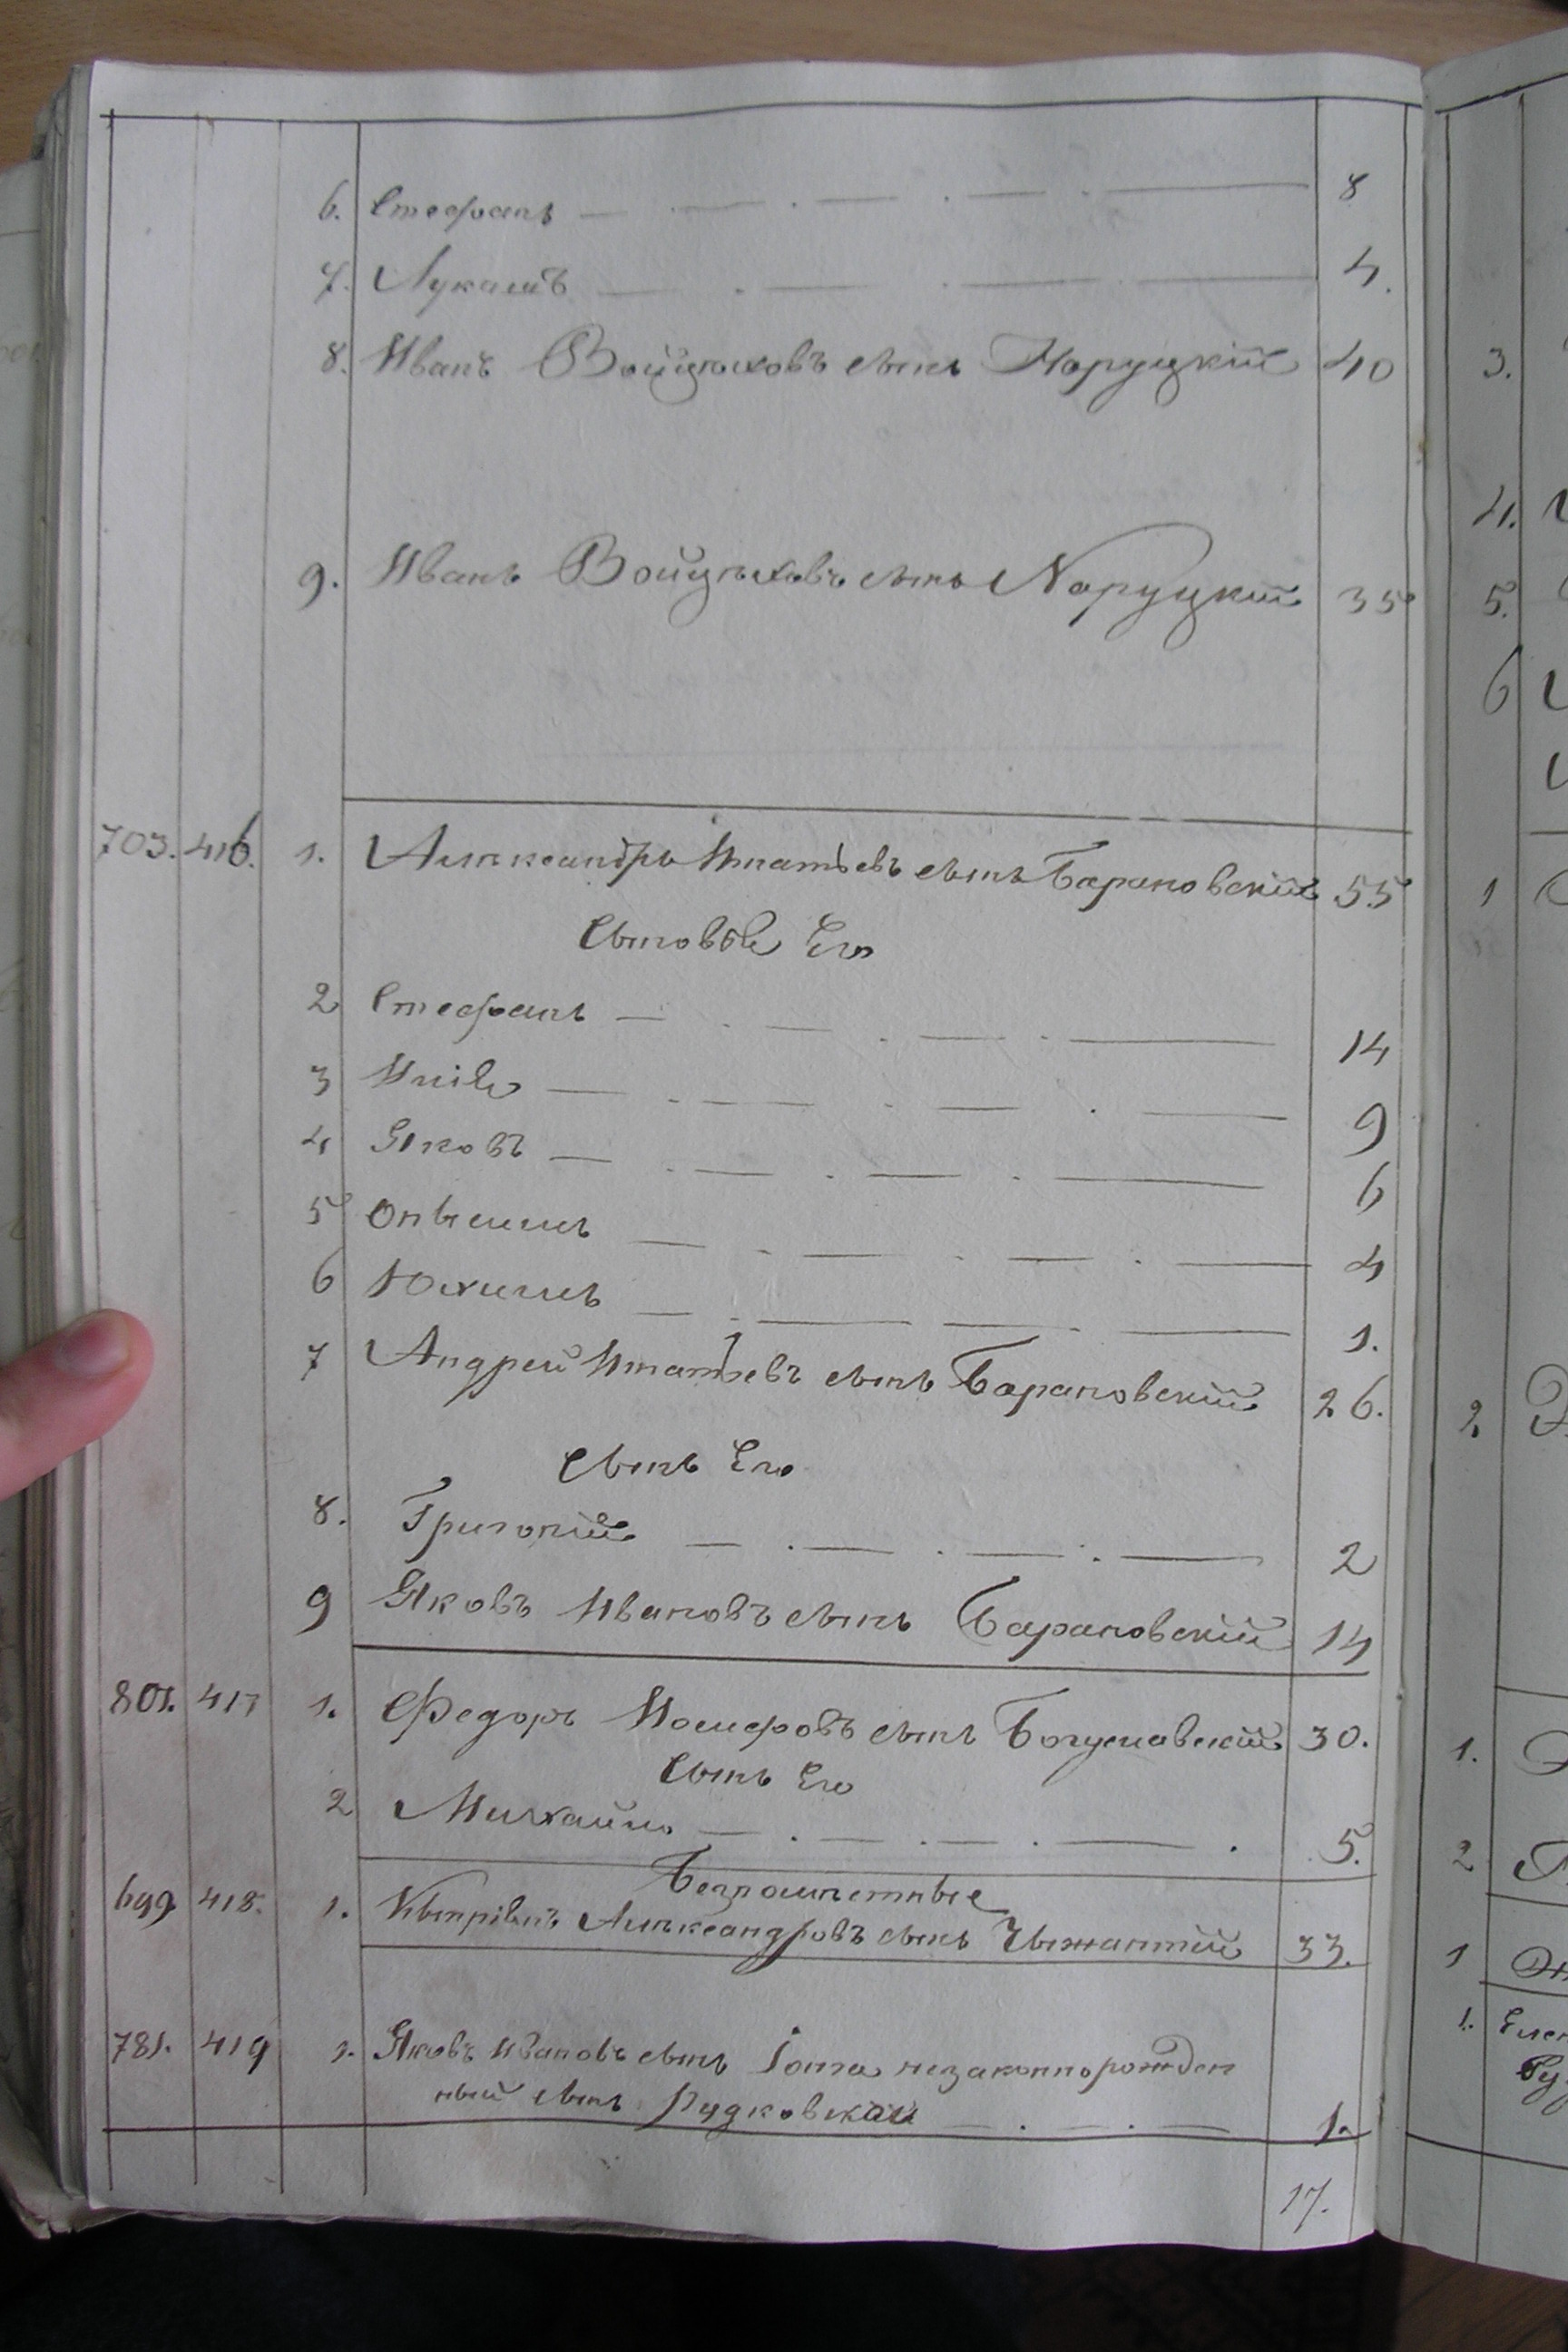 6. Стефанъ 8
7. Лукашъ 4.
8. Иванъ Войцѣховъ сынъ Норуцкій 40
9. Иванъ Войцѣховъ сынъ Норуцкій 35
703. 416. 1. Александръ Игнатьевъ сынъ Барановскій 55
Сыновье Его
2 Стефанъ 14
3 9
4 Яковъ 6
5 4
6 Юхимъ 1.
7 Андрей Игнатьевъ сынъ Барановскій 26.
Сынъ Его
8. Григорій 2
9 Яковъ Ивановъ сынъ Барановскій 14
801. 417 1. Федоръ сынъ Богуславскій 30.
Сынъ Его
2 Михайло 5.
Безпоместные
699 418. 1. Александровъ сынъ 33.
781. 419 1. Яковъ Ивановъ сынъ незаконнорожден
ный сынъ Рудковской 1.
17.
3.
4.
5.
6
1
2
1.
2
1
1.